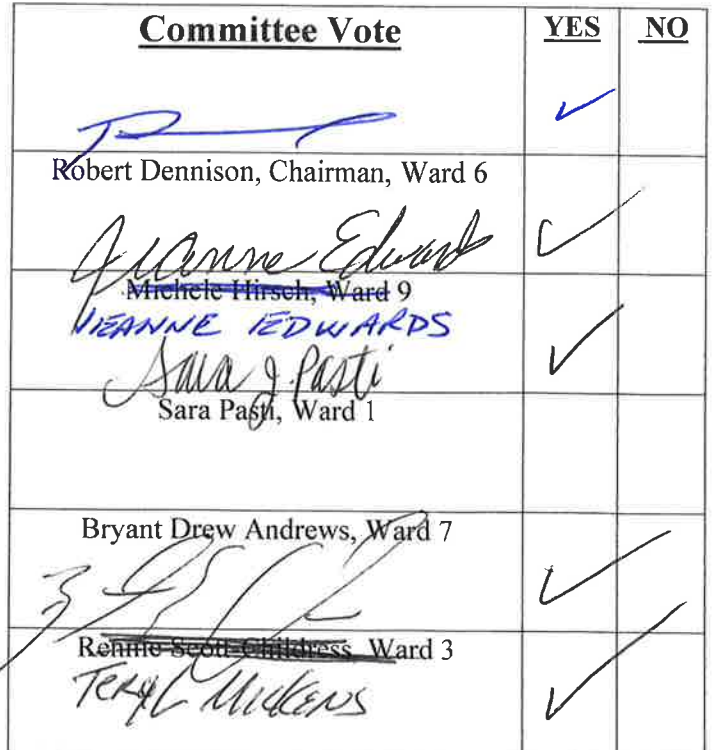 Committee Vote YES NO
Robert Dennison, Chairman, Ward 6
Jeanne Edwards
Michele Hirsch, Ward 9
JEANNE EDWARDS
Sara J. Pasti
Sara Pasti, Ward 1
Bryant Drew Andrews, Ward 7
Rennie Scott-Childress, Ward 3